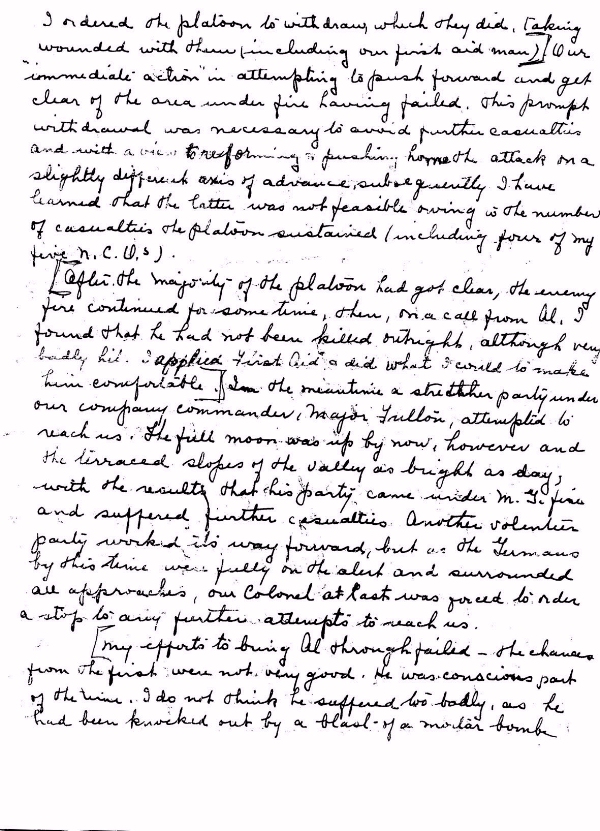 I ordered the platoon to withdraw, which they did, taking
wounded with them (including our first aid man)[ Our
"immediate action" in attempting to push forward and get
clear of the area under fire having failed. This prompt
withdrawal was necessary to avoid further casualties
and with a view to reforming & pushing home the attack on a
slightly different axis of advance, subsequently I have
learned that the latter was not feasible owing to the number
of casualties the platoon sustained (including four of my
five N.C.O.s).
[After the majority of the platoon had got clear, the enemy
fire continued for some time, then, on a call from Al, I
found that he had not been killed outright, although very
badly hit. I applied First Aid & did what I could to make
him comfortable.] In the meantime a stretcher party under
our company commander, Major Fullon, attempted to
reach us. The full moon was up by now, however and
the terraced slopes of the valley as bright as day,
with the results that his party came under M.G. fire
and suffered further casualties. Another volentier
party worked its way forward, but as the Germans
by this time were fully on the alert and surrounded
all approaches, our Colonel at last was forced to order
a stop to any further attempts to reach us.
[My efforts to bring Al through failed – the chances
from the first were not very good. He was conscious part
of the time. I do not think he suffered too badly, as he
had been knocked out by a blast of a mortar bombe